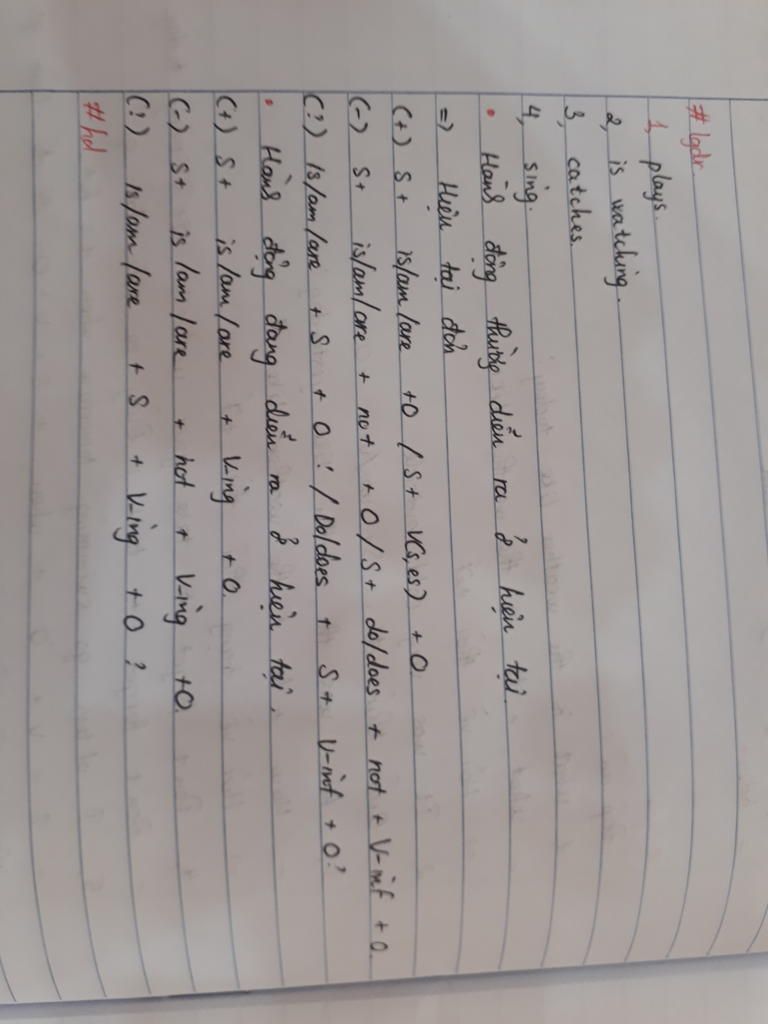 #lgdr
1, plays.
2, is watching.
3, catches.
4, sing.
• Hành động thường diễn ra ở hiện tại
=> Hiện tại đơn
(+) S + is/am/are +O / S + V(s,es) + O
(-) S + is/am/are + not + O / S + do/does + not + V-inf + O.
(?) Is/am/are + S + O ? / Do/does + S + V-inf + O?
• Hành động đang diễn ra ở hiện tại.
(+) S + is/am/are + V-ing + O.
(-) S + is/am/are + not + V-ing +O.
(?) Is/am/are + S + V-ing + O ?
#hd